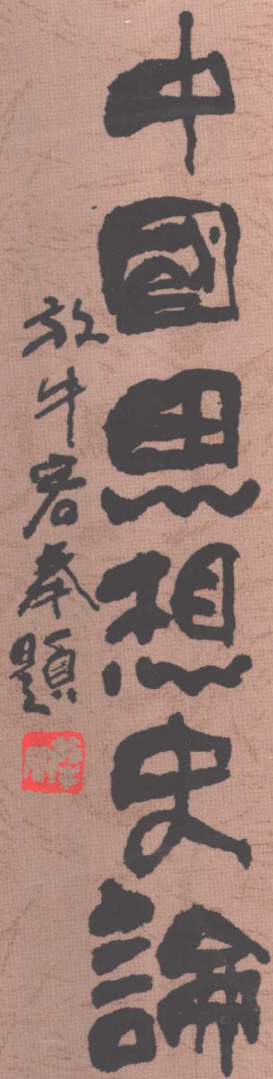 中國思想史論
放牛客奉題